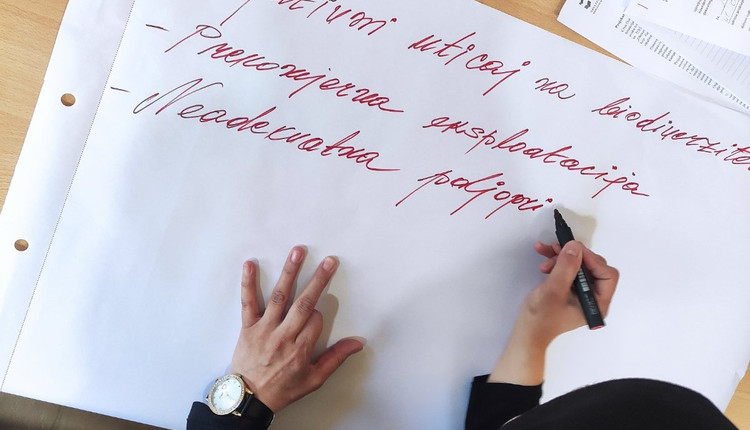 tivni uticaj na biodiverzite
- Prekomjerna eksploatacija
- Neadekvatna poljopri